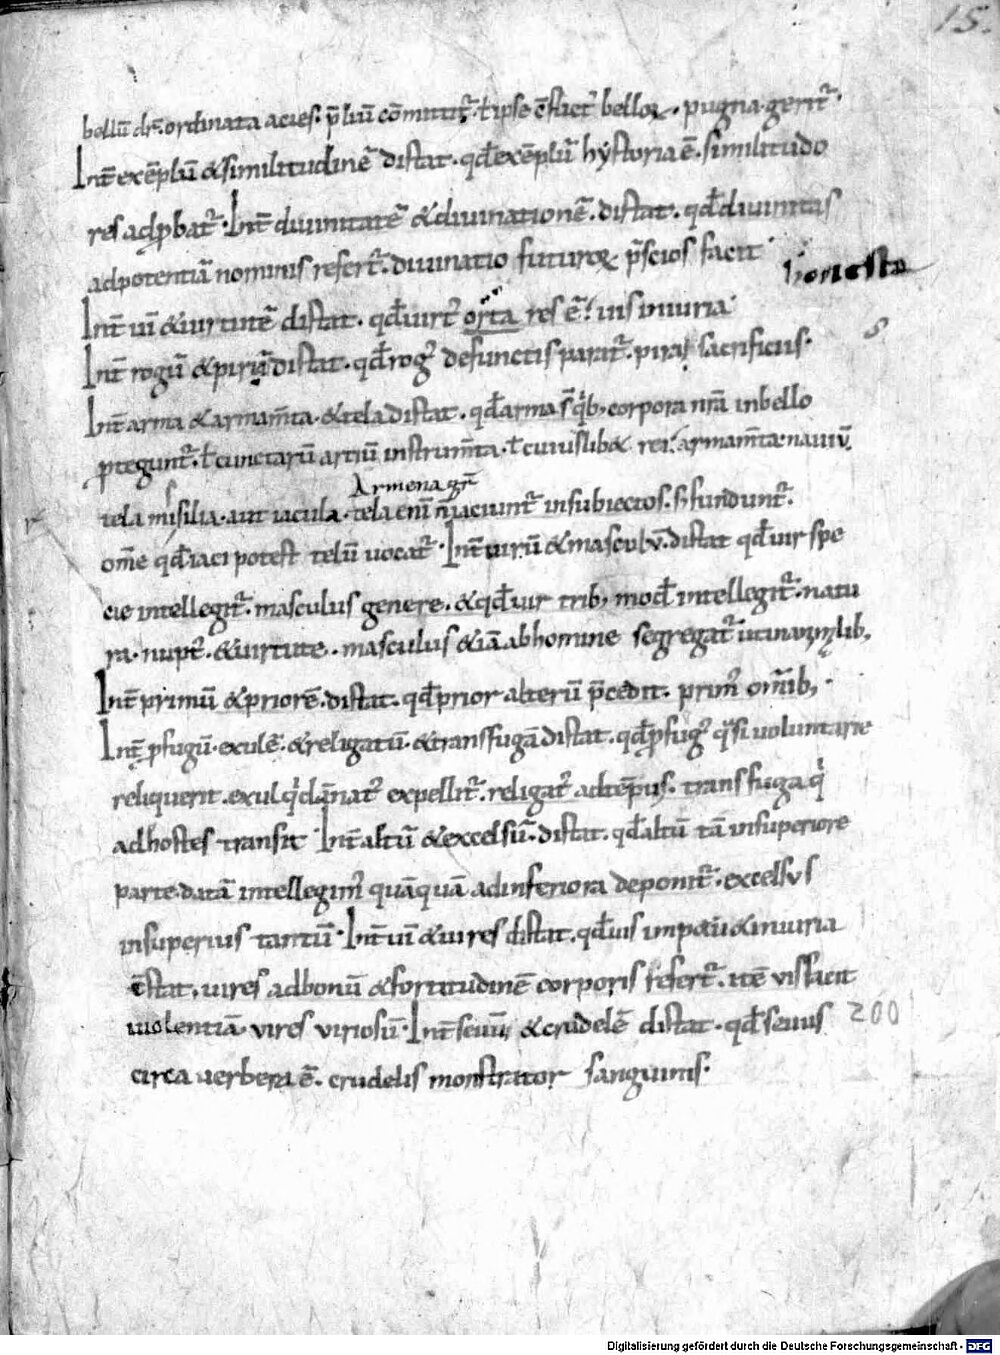 15.
bellū dr̄. ordinata acies. p̄liū cōmittit̄. ł ipse c̄flict᷒ belloꝝ. pugna. gerit̄.
Int̄ exēplū & similitudinē distat. qđ exēpliū hystoria ē. similitudo
res adꝓbat̄. Int̄ diuinitatē & diuinationē. distat. qđ diuinitas
ad potentiā nominis refert̄. diuinatio futuroꝝ p̄scios facit
honesta
Int̄ uī & uirtutē distat. qđ uirt᷒ orta res ē. uis iniuria
Int̄ rogū & pirā distat. qđ rog᷒ defunctis parat̄. pira sacrificiis.
s
Int̄ arma & armam̄ta. & tela distat. qđ arma s̄ qib; corpora nr̄a in bello
ꝓtegunt̄. ł cunctarū artiū instrum̄ta. ł cuiuslib& rei. armam̄ta nauiū.
Armena gr̄
tela misilia. aut iacula. tela eni n̄ iaciunt̄ in subiectos. s; fundunt̄.
om̄e qđ iaci potest telū uocat̄. Int̄ uirū & masculū. distat qđ uir spe
cie intellegit̄. masculus genere. & qđ uir trib; mod̄ intellegit̄. natu
ra. nupt᷒. & uirtute. masculus &iā ab homine segregat̄ ut in animalib;
Int̄ primū & priorē. distat. qđ prior alterū p̄cedit. prim᷒ om̄ib;.
Int̄ ꝓfugū. exulē. & religatū. & transfugā distat. qđ ꝓfug᷒ q̄si uoluntarie
reliquerit. exul qi dānat᷒ expellit̄. religat᷒ ad tēpus. transfuga qi
ad hostes transit. Int̄ altū & excelsū. distat. qđ altū tā in superiore
parte datā intellegim᷒ quāquā ad inferiora deponit̄. excelsus
in superius tantū. Int̄ uī & uires distat. qđ uis impetū & iniuria
c̄stat. uires ad bonū & fortitudinē corporis refert̄. itē vis facit
uiolentiā. vires viriosū. Int̄ seuū & crudelē distat. qđ seuus 200
circa uerbera ē. crudelis monstrator sanguinis.
Digitalisierung gefördert durch die Deutsche Forschungsgemeinschaft - DFG